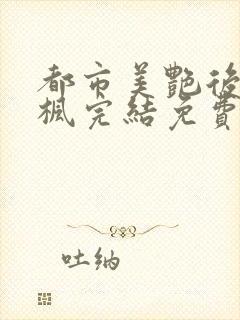 都市美艷後
楓完結免費
吐納